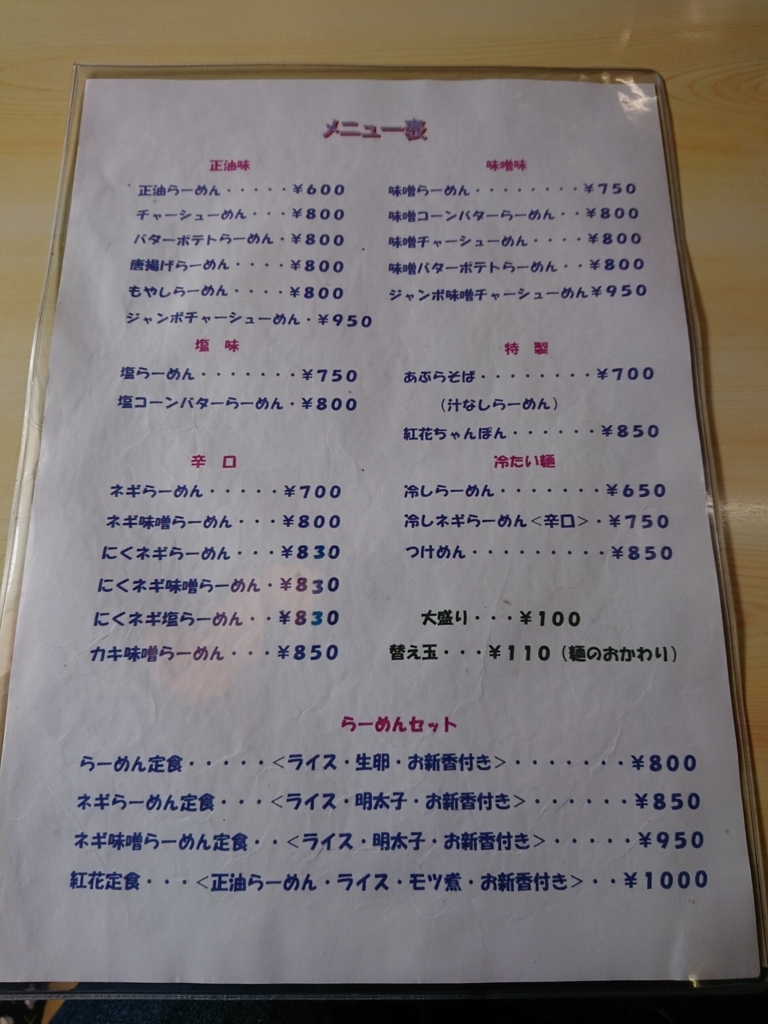 メニュー表
正油味
正油らーめん・・・・・￥600
チャーシューめん・・・￥800
バターポテトらーめん・￥800
唐揚げらーめん・・・・￥800
もやしらーめん・・・・￥800
ジャンボチャーシューめん・￥950
味噌味
味噌らーめん・・・・・・・・￥750
味噌コーンバターらーめん・・￥800
味噌チャーシューめん・・・・￥800
味噌バターポテトらーめん・・￥800
ジャンボ味噌チャーシューめん￥950
塩 味
塩らーめん・・・・・・・￥750
塩コーンバターらーめん・￥800
特 製
あぶらそば・・・・・・・・￥700
（汁なしらーめん）
紅花ちゃんぽん・・・・・・￥850
辛 口
ネギらーめん・・・・・￥700
ネギ味噌らーめん・・・￥800
にくネギらーめん・・・￥830
にくネギ味噌らーめん・￥830
にくネギ塩らーめん・・￥830
カキ味噌らーめん・・・￥850
冷たい麺
冷しらーめん・・・・・・・￥650
冷しネギらーめん＜辛口＞・￥750
つけめん・・・・・・・・・￥850
大盛り・・・￥100
替え玉・・・￥110（麺のおかわり）
らーめんセット
らーめん定食・・・・・＜ライス・生卵・お新香付き＞・・・・・・・￥800
ネギらーめん定食・・・＜ライス・明太子・お新香付き＞・・・・・・￥850
ネギ味噌らーめん定食・・＜ライス・明太子・お新香付き＞・・・・・￥950
紅花定食・・・＜正油らーめん・ライス・モツ煮・お新香付き＞・・￥1000